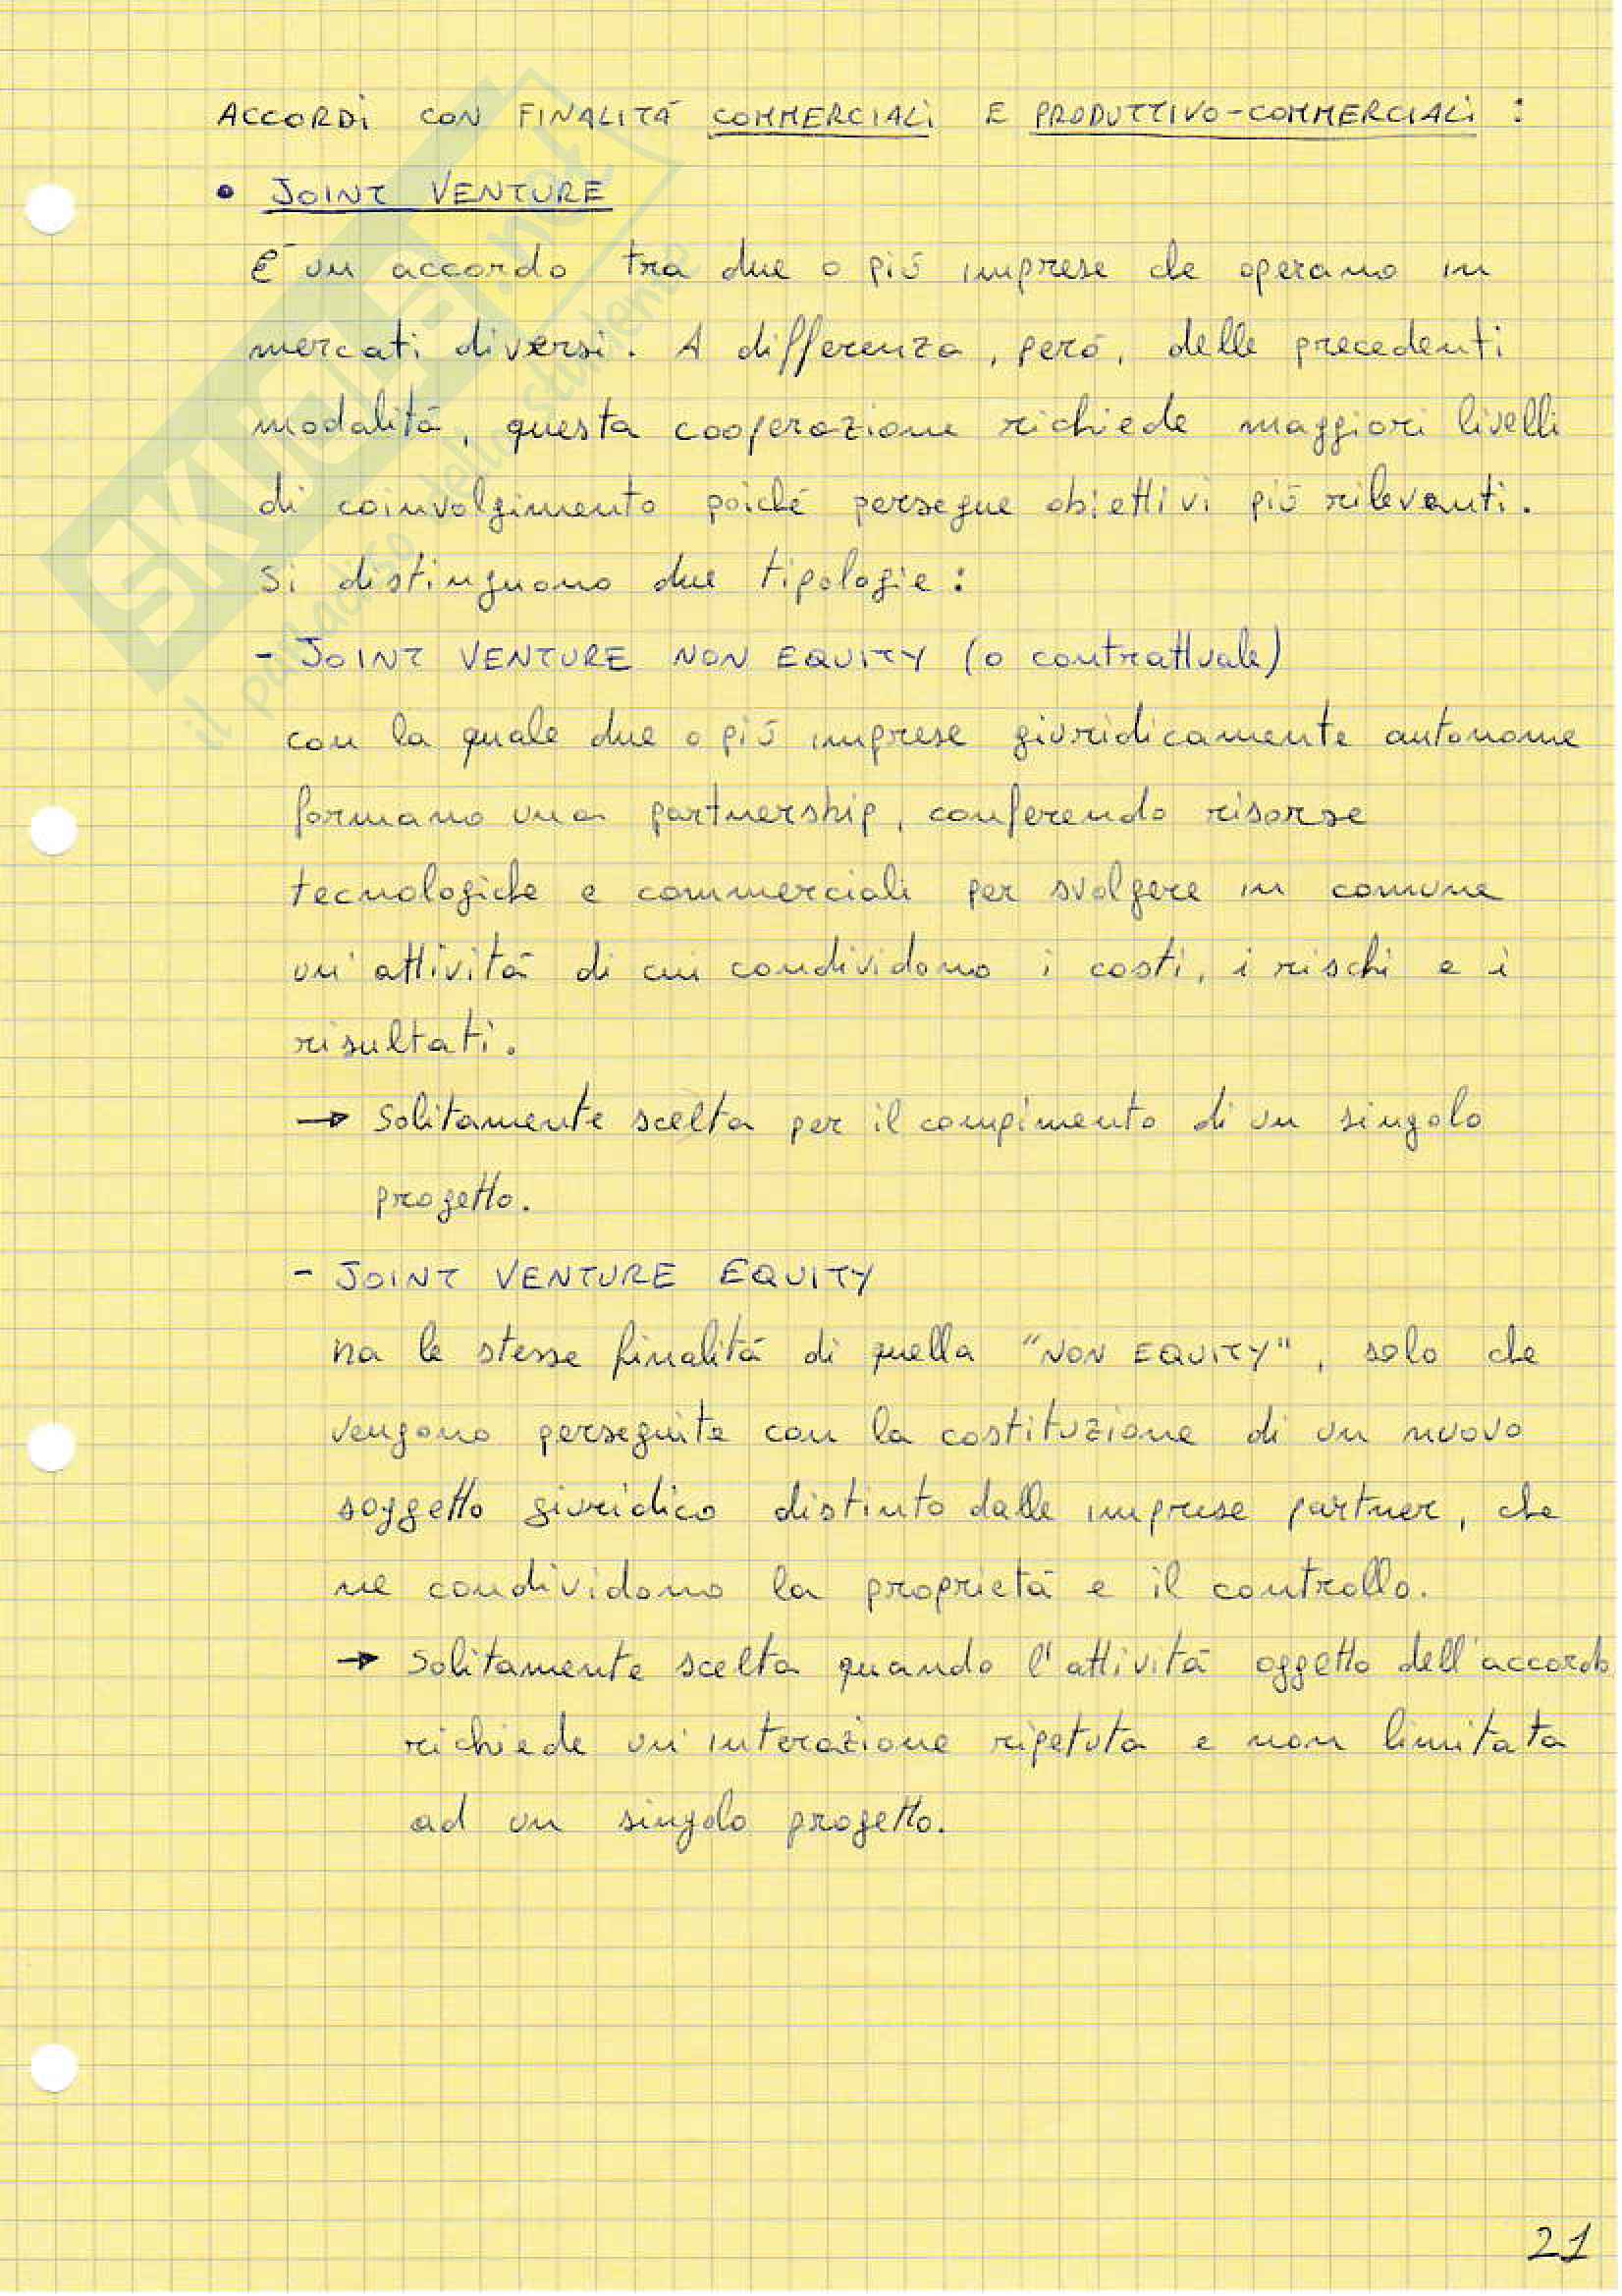 ACCORDI CON FINALITÀ COMMERCIALI E PRODUTTIVO-COMMERCIALI :
• JOINT VENTURE
È un accordo tra due o più imprese che operano in
mercati diversi. A differenza, però, delle precedenti
modalità, questa cooperazione richiede maggiori livelli
di coinvolgimento poiché persegue obiettivi più rilevanti.
Si distinguono due tipologie:
- JOINT VENTURE NON EQUITY (o contrattuale)
con la quale due o più imprese giuridicamente autonome
formano una partnership, conferendo risorse
tecnologiche e commerciali per svolgere in comune
un'attività di cui condividono i costi, i rischi e i
risultati.
→ Solitamente scelta per il compimento di un singolo
progetto.
- JOINT VENTURE EQUITY
ha le stesse finalità di quella "NON EQUITY", solo che
vengono perseguite con la costituzione di un nuovo
soggetto giuridico distinto dalle imprese partner, che
ne condividono la proprietà e il controllo.
→ Solitamente scelta quando l'attività oggetto dell'accordo
richiede un'interazione ripetuta e non limitata
ad un singolo progetto.
21
SKUOLA.net
il paradiso dello studente